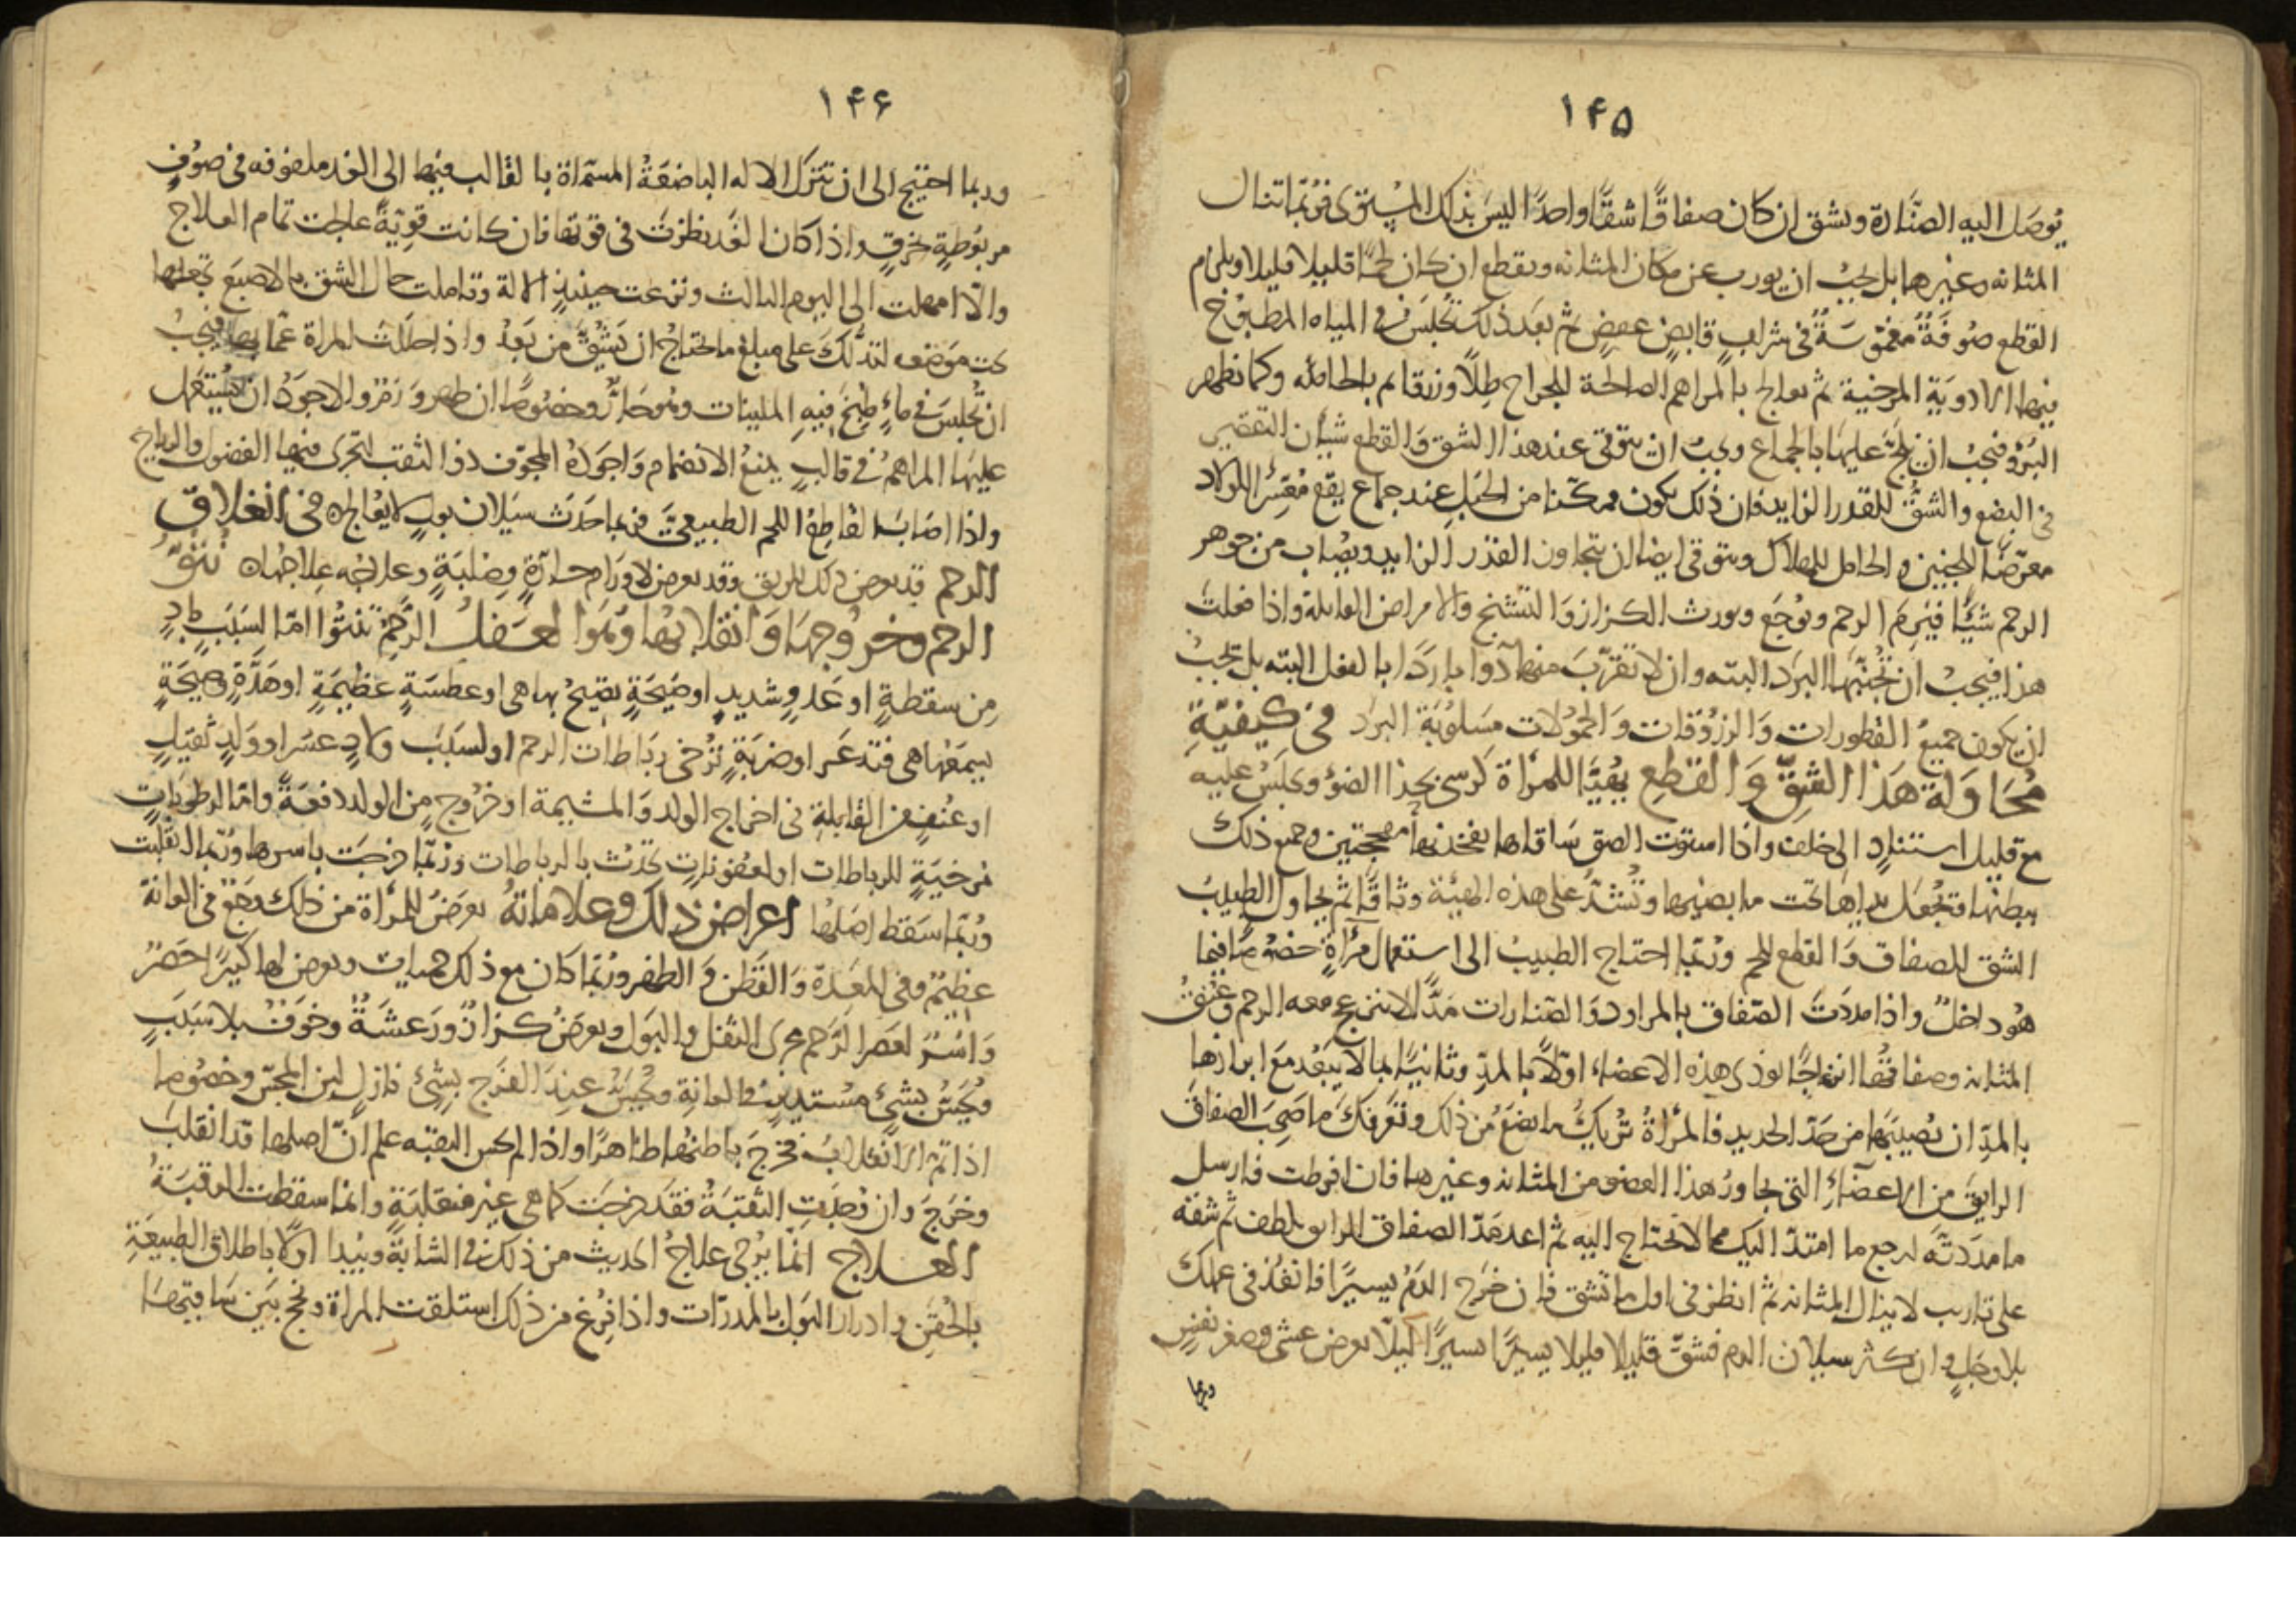 ۱۴۵
يُوصَل اليه الصنّارة ويشق ان كان صفاقًا شقًّا واحدًا ليس بذلك المستوى فربّما تنال
المثانه وغيرها بل يجبُ ان يورب عن مكان المثانه ويقطع ان كان لحمًا قليلا قليلا ويلزم
القطع صُوفَةً مغمُوسَةً في شرابٍ قابضٍ عفصٍ ثم بعَد ذلك تُجلَس في المياه المطبُوخ
فيها الادويَةِ المرخية ثم يعالج بالمراهم الصالحة للجراح طِلًا وزرقا ثم بالحامله وكما يظهر
البُرؤ فيجبُ ان يُلحَّ عليهَا بالجماع ويجبُ ان يتوقى عند هذا الشق والقطع شيئان التقصير
في البضع والشقِّ للقدر الزايد فان ذلك يكون ممكنا من الحَبَل عند جماع يقع مُعَسِّرًا للولاد
معرّضًا للجنين والحامل للهلاك ويتوقى ايضا ان يتجاوز القدر الزايد ويُصَاب من جوهر
الرحم شيئًا فيَرِمَ الرحم ويوُجَع ويورث الكزاز وَالتشنج والامراض القاتلة واذا فعلتَ
هذا فيجبُ ان تجنّبهَا البرَد البته وان لا تقرّبَ منها دَوا باردًا بالفعل البته بل يجبُ
ان يكون جميعُ القطورات وَالزرُوقات وَالحمُولات مسَلُوبَة البرَد في كيفيّةِ
مُحَاوَلة هَذا الشقِّ وَالقطع يُهيَّا للمرأة كرسى بحذا الضوُ وتجلسُ عليه
مع قليل استنادٍ الى خلف واذا استوت الصق سَاقاها بفخذيهَا مُفحجتين وجميع ذلك
ببطنها وتُجعَل يداها تحت مابضيها وتُشدّ على هذه الهيئة وثاقًا ثم يحاول الطبيبُ
الشق للصفاق وَالقطع للحم ورُبّما احتاج الطبيبُ الى استعمال مرآةٍ خصُوصًا فيما
هُو داخلٌ واذا مدَدتَ الصّفاق بالمراود وَالصّنارات مَدًّا لا ينزعج معه الرحم وعنُقُ
المثانه وصفاقهُا انزعاجًا يوذى هذه الاعضاء اوّلاً بالمدّ وثانيًا بما لا يبعُد معَ ابرازها
بالمدّ ان يُصيبَها من حَدّ الحديد فالمرأةُ تُريكُ ما يضعَ من ذلك وتعَرفكَ ما صَحِبَ الصفاقَ
الرايقَ من الاعضَاءِ التي يجاورُ هذا العضو من المثانه وغيرها فان افرطت فارسل
ما مدَدتَه ليرجع ما امتدّ اليك مما لا تحتاج اليه ثم اعد مَدّ الصفاق الرايق بلطف ثم شقه
على تاريب لا ينال المثانه ثم انظر في اول ما تُشق فان خرَج الدَمُ يسيرًا فانفُذ في عملك
بلا وجَلٍ وان كثر سيلان الدم فشقَّ قليلا قليلا يسيرًا يسيرًا لئيلّا يعرض غشى وصغر نفسٍ
وربما
۱۴۶
وربما احتيج الى ان تترَك الاله الباضعَةُ المسّماة بالقالب فيها الى الغد ملفوفه في صوُفٍ
مربوُطةٍ بخرقٍ واذا كان الغَد نظرتَ في قوتها فان كانت قوِيّةً عاجلت تمام العلاج
والّا امهلت الى اليوم الثالث ونزعت حينيذٍ الالة وتاملت حال الشق بالاصبَع تجعلها
تحت موَضعه لتدلّك على مبلغ ما تحتاجُ ان يُشَقَّ من بَعدُ واذا حللتَ المراة عمّا بها فيجبُ
ان تُجلسَ في ماءٍ طبُخَ فِيهِ الملينات وهوُ حَارٌّ وخصُوصًا ان ظهر وَرَمٌ والاجوَدُ ان يُستعمَل
عليهَا المراهمُ في قالبٍ يمنعُ الانضمام وَاجوَدُهُ المجوّف ذو الثقب لتجرى فيها الفضول والرياح
واذا اصَابَ القاطِعُ اللحم الطبيعىَّ فربما حَدَثَ سيَلان بولٍ لا يعُالج ٥ في انغلاق
الرحم قد يعرض ذلك للرتق وقد يعرض لاورَامٍ حَارّةٍ وصُلبَةٍ وعلاجُه علاجُها ٥ نتوِّ
الرحم وخروُجهَا وَانقلابهَا وهُوَ العَفلُ الرَّحِمُ تَنتُوا امّا لسَبَبٍ بادٍ
مِن سقطةٍ او عَدوٍ شديدٍ او صَيحَةٍ تصَيحُ بهَا هى او عطسَةٍ عظيمَةٍ او هَدّةٍ وصيحَةٍ
تسمَعُهَا هى فتذعَر او ضربَةٍ تُرخى رِبَاطات الرحم او لسَبَب ولادٍ عسَر او ولَدٍ ثقيلٍ
او عُنفٍ من القابلةِ في اخراج الولد وَالمشيمة او خرُوجٍ مِن الولد دفعَةً وامّا الرطوبَاتٍ
مُرخيَةٍ للرباطات او لعفُونَاتٍ تحدُث بالرباطات ورُبّما خرجَت باسرها وربّما انقلبَت
وربّما سَقط اصَلهُا اعراض ذلك وعلاماتهُ يعرَضُ للمرأة من ذلك وَجَعٌ في العانة
عظيمٌ وفي المعَدة وَالقَطن وَالظهر وربّما كان مع ذلك حمّيات ويعرض لها كثيرًا حَصرٌ
وَاُسْرٌ لعَصر الرَّحم مجرى الثفل والبَول ويعرَضُ كزازٌ ورَعشةٌ وخوَفٌ بلا سَببٍ
وَيُحسّ بشئٍ مسُتدير في العانةِ ويُحسّ عندَ الفرَج بشئٍ نازلٍ ليّن المجسّ وخصُوصا
اذا تمَّ الانقلابُ فخرَجَ باطنهُا ظاهرًا واذا لم يحس الثقبه علم انّ اصلها قد انقلبَ
وخرَجَ وان وُجدَتِ الثقبَةُ فقَد خرجَت كما هى غير منقلبَةٍ وانما سقطت الرقبَةُ
العلاج انّما يُرجى علاجُ الحديث من ذلك في الشابّة ويَبدا اوّلاً باطلاق الطبيعَةِ
بالحُقَنِ وادرار البَول بالمدرّات واذا فُرغ من ذلك استلقت المراة وتفحج بَين سَاقيهَا